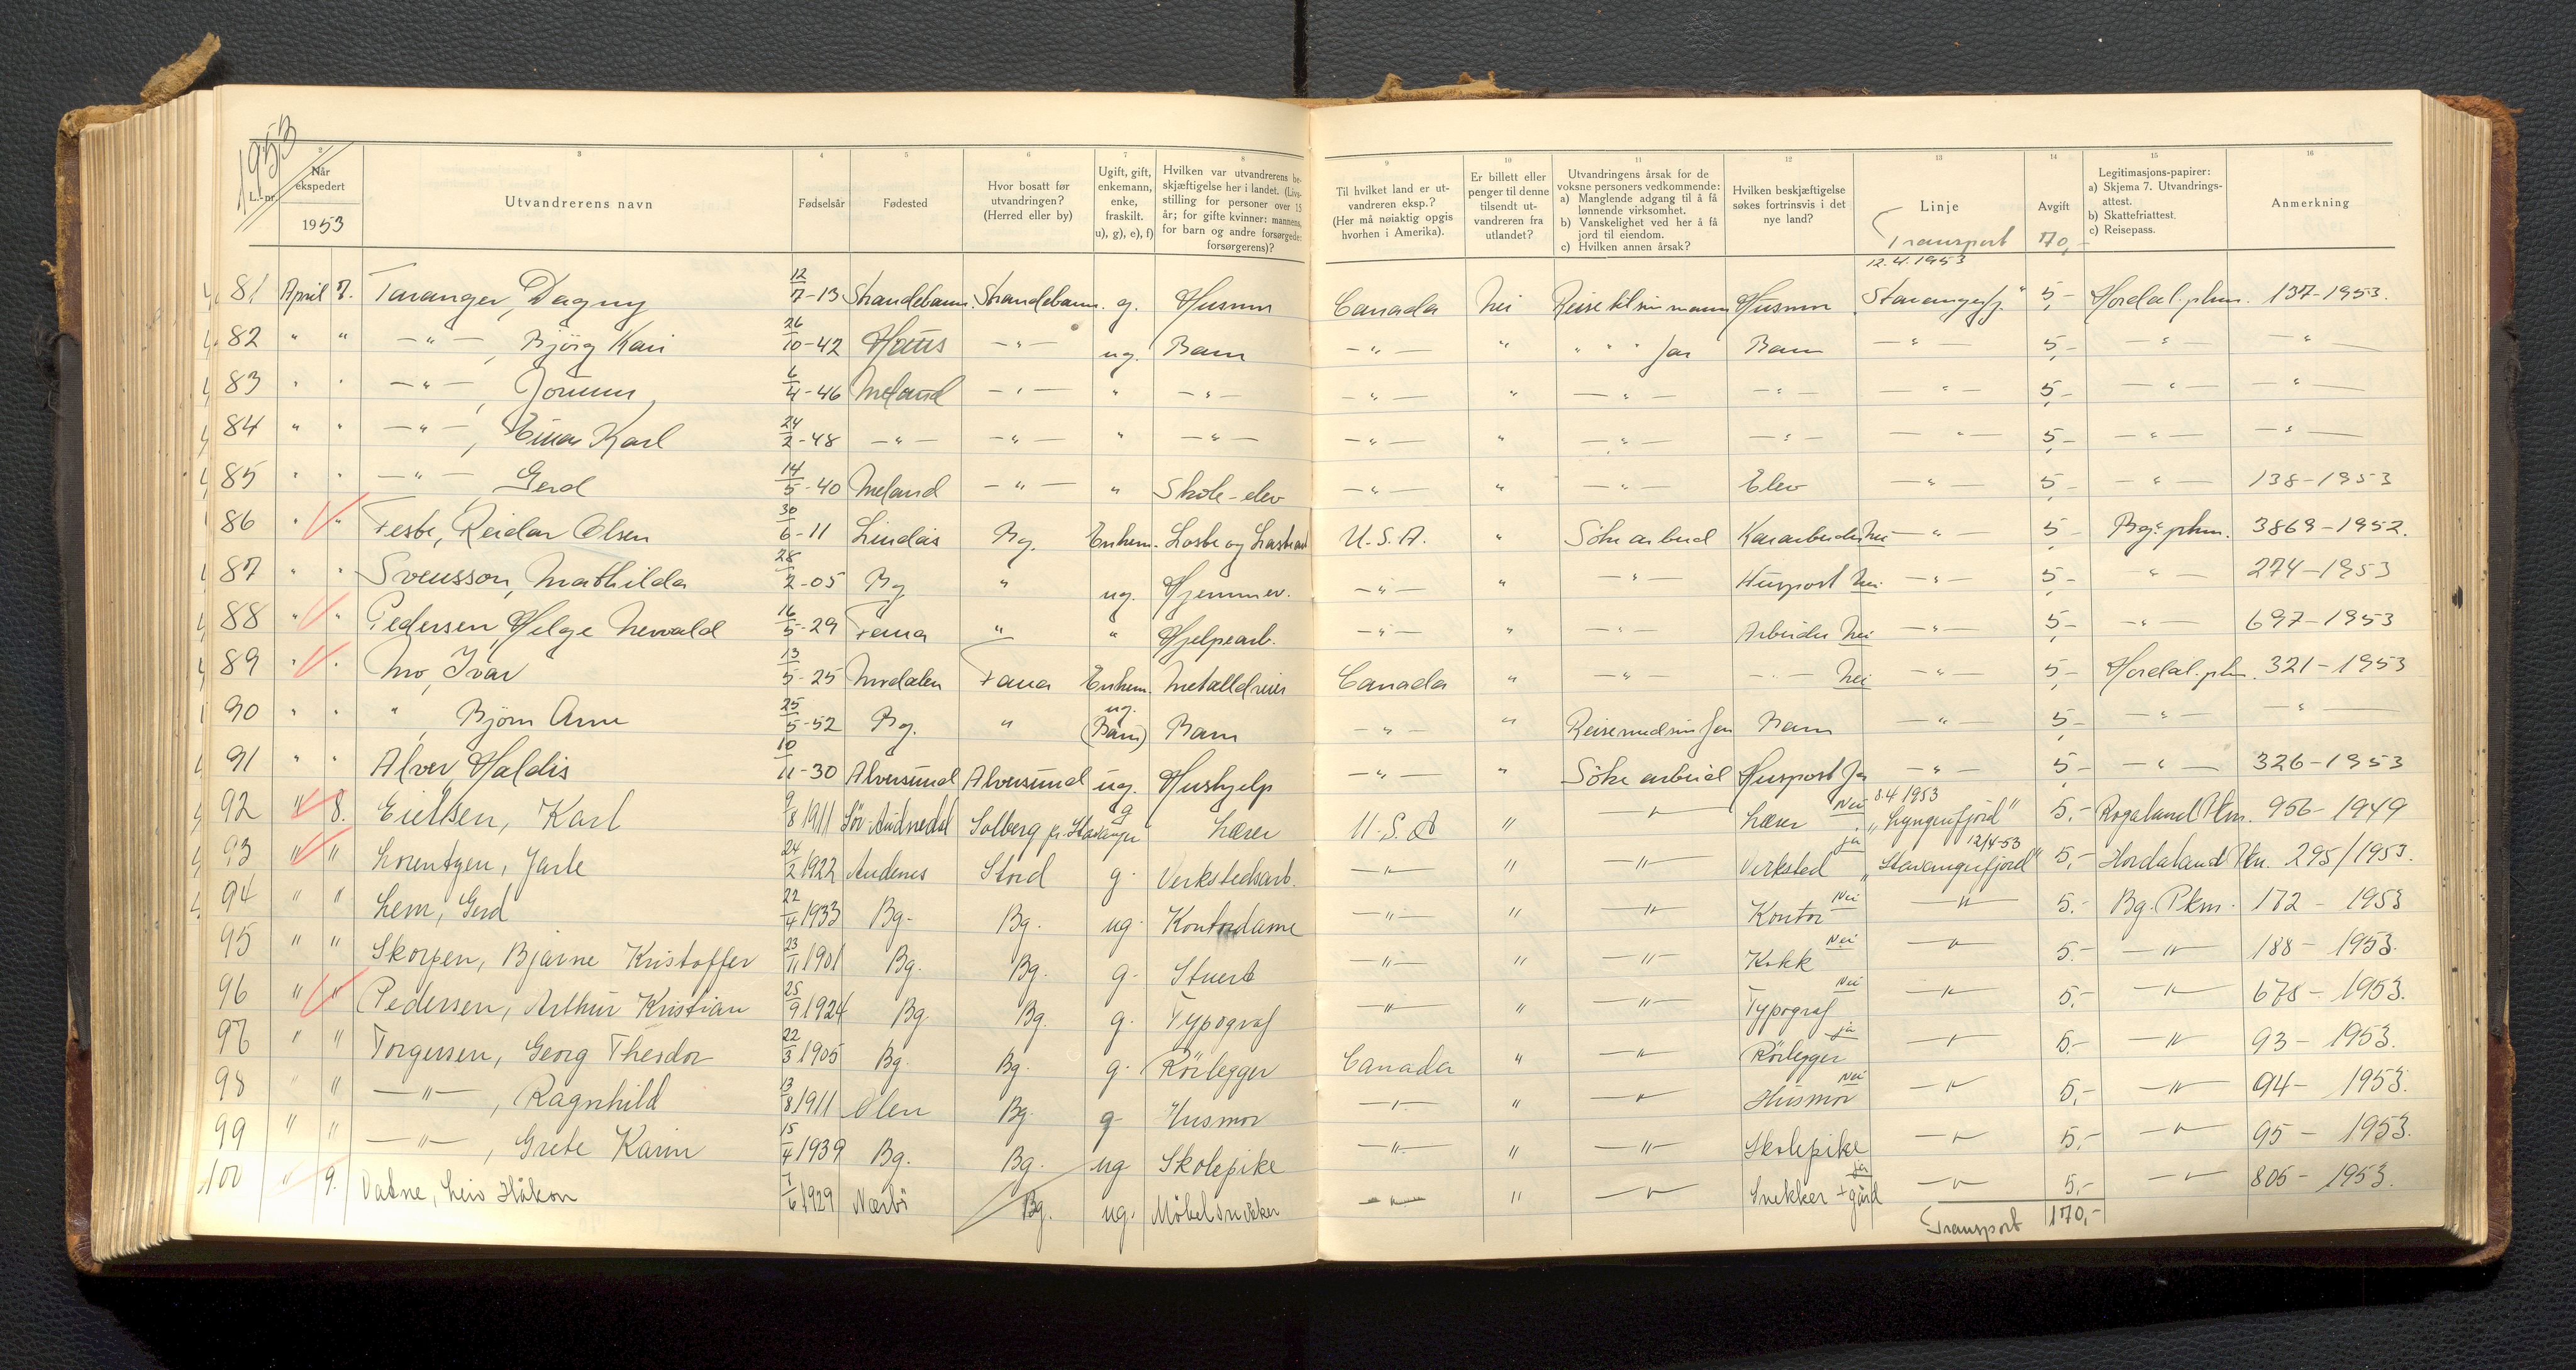 1953
2 3 4 5 6 7 8 9 10 11 12 13 14 15 16
L. nr. Når ekspedert 1953 Utvandrerens navn Fødselsår Fødested Hvor bosatt før utvandringen? (Herred eller by) Ugift, gift, enkemann, enke, fraskilt. u), g), e), f) Hvilken var utvandrerens beskjæftigelse her i landet. (Livsstilling for personer over 15 år; for gifte kvinner: mannens, for barn og andre forsørgede: forsørgerens)? Til hvilket land er utvandreren eksp.? (Her må nøiaktig opgis hvorhen i Amerika). Er billett eller penger til denne tilsendt utvandreren fra utlandet? Utvandringens årsak for de voksne personers vedkommende: a) Manglende adgang til å få lønnende virksomhet. b) Vanskelighet ved her å få jord til eiendom. c) Hvilken annen årsak? Hvilken beskjæftigelse søkes fortrinsvis i det nye land? Linje Avgift Legitimasjons-papirer: a) Skjema 7. Utvandringsattest. b) Skattefriattest. c) Reisepass. Anmerkning
Transport 70,-
12.4.1953
81 April 7. Taranger, Dagny 12/7-13 Strandebarm. Strandebarm. g. Husmor Canada Nei Reise til sin mann Husmor Stavangerfj." 5,- Hordal. pkm. 137-1953.
82 " " —"— , Björg Kari 26/10-42 Haus —"— ug. Barn —"— " " " " far Barn —"— 5,- —"— —"—
83 " " —"— , Jorunn 6/4-46 Meland —"— " —"— —"— " —"— —"— —"— 5,- —"— —"—
84 " " —"— , Einar Karl 24/2-48 —"— —"— " —"— —"— " —"— —"— —"— 5,- —"— —"—
85 " " —"— Gerd 14/5-40 Meland —"— " Skole-elev —"— " —"— Elev —"— 5,- —"— 138-1953
86 " " Feste, Reidar Olsen 30/6-11 Lindås Bg. Enkem. Losse og U.S.A. " Söke arbeid Nei —"— 5,- Bg. pkm. 3869-1952.
87 " " Svensson, Mathilda 28/2-05 Bg " ug. Hjemmev. —"— " —"— Huspost Nei —"— 5,- —"— 274-1953
88 " " Pedersen, Helge Newald 16/5-29 Fana " " Hjelpearb. —"— " —"— Arbeider Nei —"— 5,- —"— 697-1953
89 " " Mo, Ivar 13/5-25 Modalen Fana Enkem. Metalldreier Canada " —"— —"— Nei —"— 5,- Hordal. pkm. 321-1953
90 " " " , Björn Arne 25/5-52 Bg. " ug. (Barn) Barn —"— " Reise med sin far Barn —"— 5,- —"— —"—
91 " " Alver, Haldis 10/11-30 Alversund Alversund ug. Hushjelp —"— " Söke arbeid Huspost Ja —"— 5,- —"— 326-1953
92 " 8. Eielsen, Karl 9/8 1911 Sör-Audnedal Solberg pr. Stavanger g Lærer U.S.A " —"— Lærer Nei 8.4 1953 "Lyngenfjord" 5,- Rogaland Pkm. 956-1949
93 " " Lorentzen, Jarle 24/2 1922 Andenes Stord g. Verkstedsarb. —"— " —"— Verksted ja 12/4-53 "Stavangerfjord" 5,- Hordaland Pkm. 295/1953.
94 " " Lem, Gerd 22/4 1933 Bg. Bg. ug. Kontordame —"— " —"— Kontor Nei —"— 5,- Bg. Pkm. 172-1953
95 " " Skorpen, Bjarne Kristoffer 23/11 1901 Bg. Bg. g. Stuert —"— " —"— Kokk Nei —"— 5,- —"— 188-1953.
96 " " Pedersen, Arthur Kristian 25/9 1924 Bg. Bg. g. Typograf —"— " —"— Typograf Nei —"— 5,- —"— 678-1953.
97 " " Torgersen, Georg Theodor 22/3 1905 Bg. Bg. g. Rörlegger Canada " —"— Rörlegger ja —"— 5,- —"— 93-1953.
98 " " —"— , Ragnhild 13/8 1911 Ölen Bg. g. Husmor —"— " —"— Husmor Nei —"— 5,- —"— 94-1953.
99 " " —"— , Grete Karin 15/4 1939 Bg. Bg. ug Skolepike —"— " —"— Skolepike —"— 5,- —"— 95-1953.
100 " 9. Vatne, Leiv Håkon 7/6 1929 Nærbö Bg. ug. Möbelsnekker —"— " —"— Snekker + gård ja —"— 5,- —"— 805-1953.
Transport 170,-